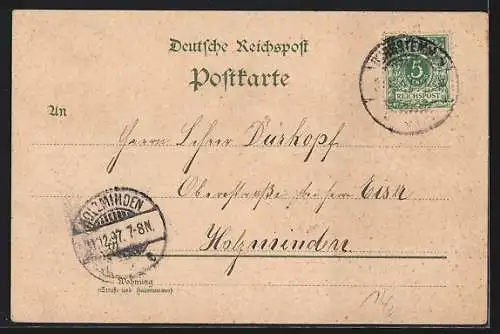 Deutsche Reichspost
Postkarte
5
REICHSPOST
An
Herrn Lehrer Dürkopf
Oberstraße bei Herrn Eisa
Holzminden
HOLZMINDEN
11.12.97.7-8N.
c
Wohnung
(Straße und Hausnummer)